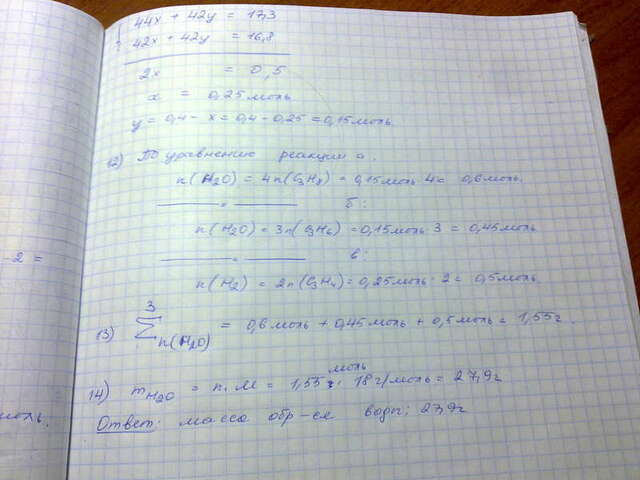 44x + 42y = 17,3
42x + 42y = 16,8
2x = 0,5
x = 0,25 моль
y = 0,4 - x = 0,4 - 0,25 = 0,15 моль
12) По уравнению реакции а:
n(H2O) = 4n(C3H8) = 0,15 моль·4 = 0,6 моль.
= б:
n(H2O) = 3n(C3H6) = 0,15 моль·3 = 0,45 моль
= в:
n(H2) = 2n(C3H4) = 0,25 моль·2 = 0,5 моль
13) 3 Σ n(H2O) = 0,6 моль + 0,45 моль + 0,5 моль = 1,55 г.
моль
14) mH2O = n·M = 1,55 г· 18 г/моль = 27,9 г
Ответ: масса обр-ся воды: 27,9 г
-2 =
моль.